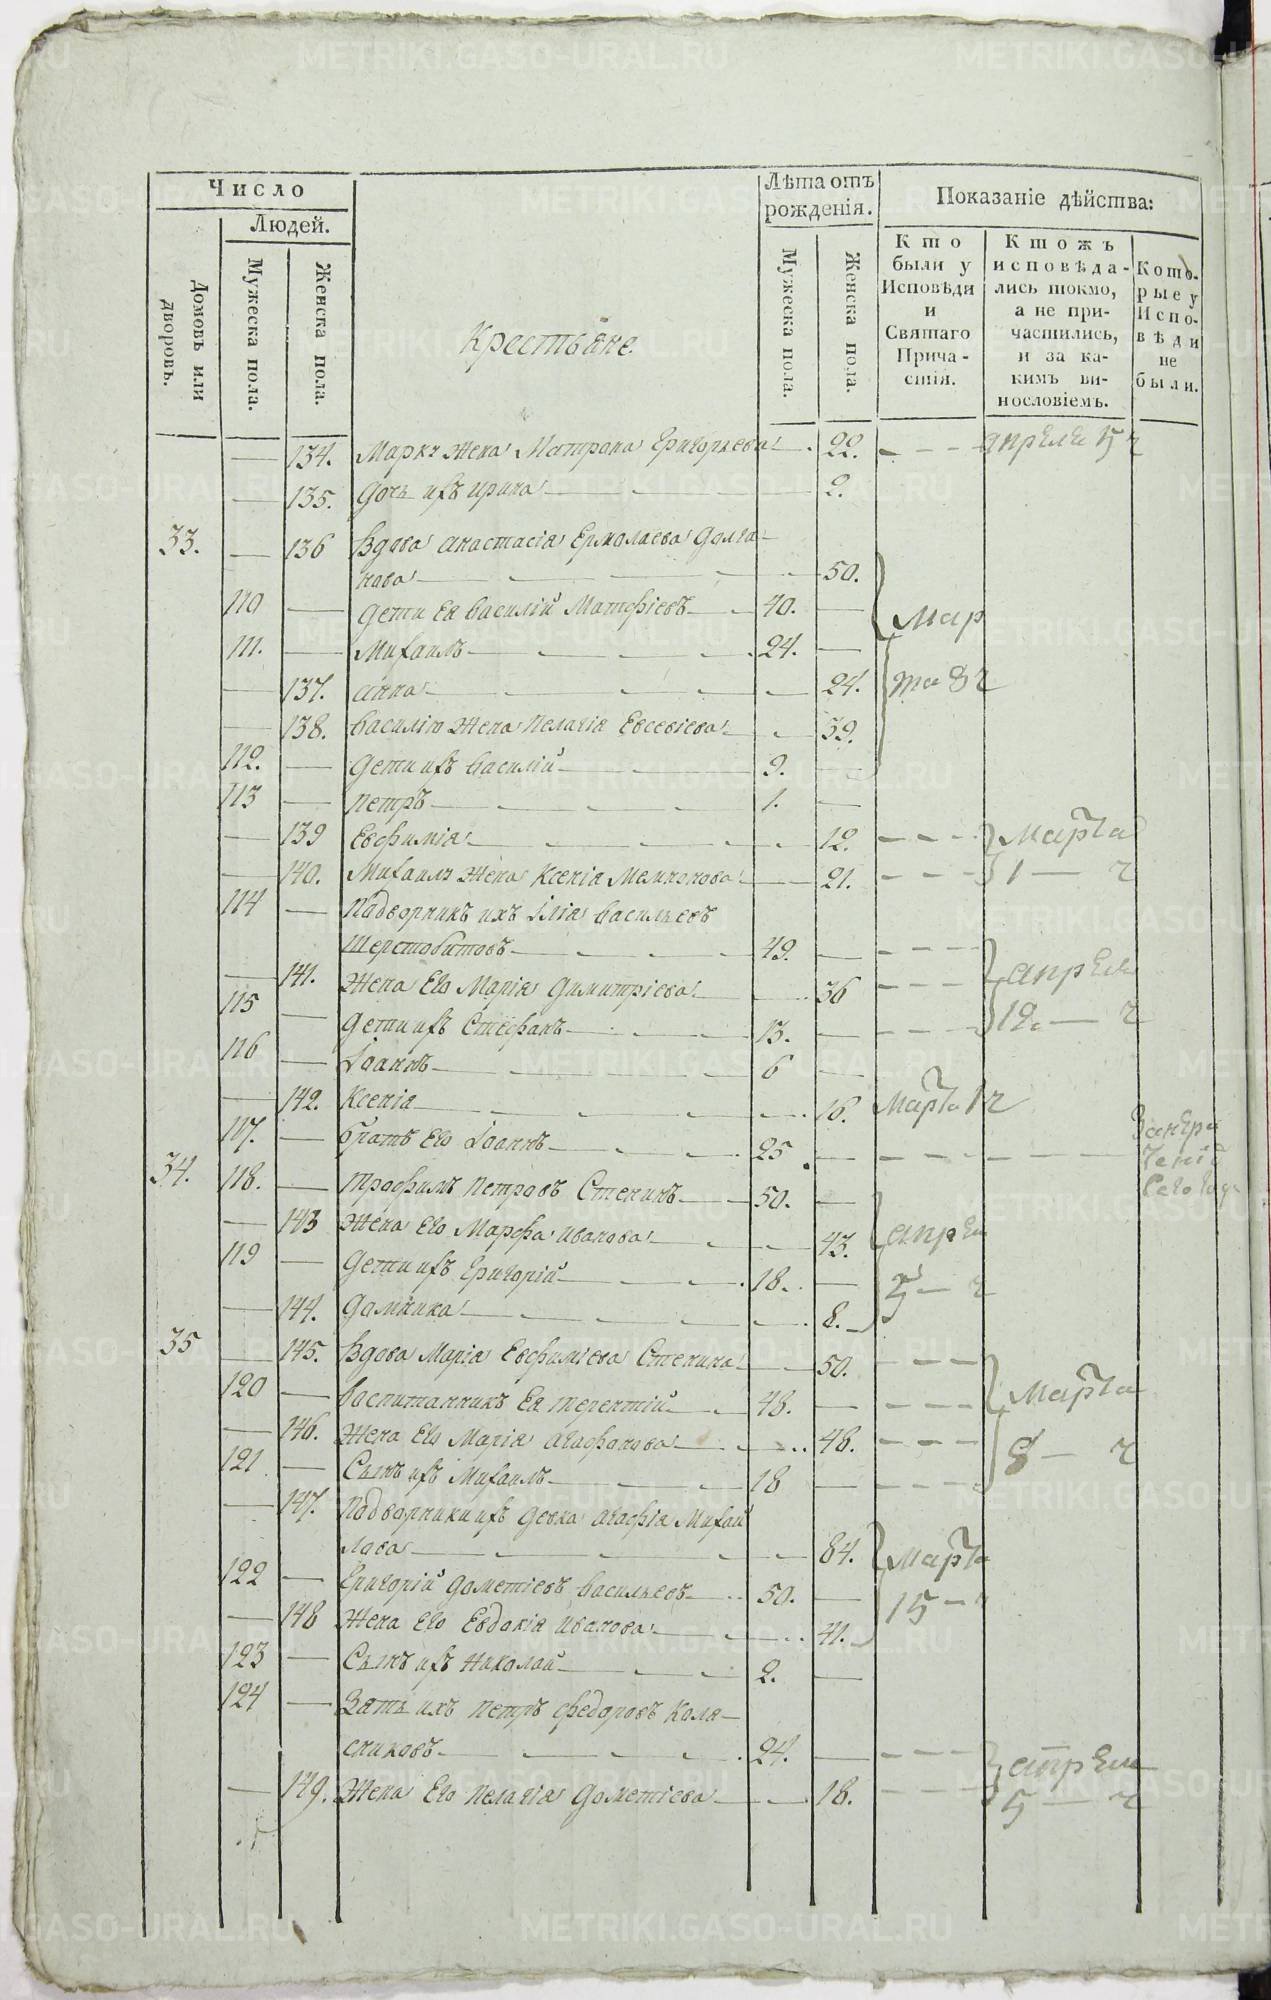 Число
Лѣта отъ рожденія.
Показаніе дѣйства:
Людей.
Домовъ или дворовъ.
Мужеска пола.
Женска пола.
Крестьяне.
Мужеска пола.
Женска пола.
Кто были у Исповѣди и Святаго Причастія.
Ктожъ исповѣдались токмо, а не причастились, и за какимъ винословіемъ.
Которые у Исповѣди не были.
— 134. Марки жена Матрона Григорьева — 22. апреля 5 ч
— 135. Дочь ихъ Ирина — 2.
33. — 136 Вдова Анастасія Ермолаева Долга-
нова — 50.
110 — Дети Ея Василій Матфіевъ — 40. — Мар
111. — Михаилъ — 24. —
— 137. Анна — 24. та 8 ч
— 138. Василію жена Пелагія Евсевіева — 39.
112. — Дети ихъ Василій — 9. —
113 — Петръ — 1. —
— 139 Евфимія — 12. Марта
— 140. Михаилы жена Ксенія — 21. 1 — ч
114 — Подворникъ ихъ Илія Васильевъ
Шерстобитовъ — 49. —
— 141. Жена Его Марія Димитріева — 36 апреля
115 — Дети ихъ Стефанъ — 13. — 12. — ч
116 — Іоаннъ — 6 —
— 142. Ксенія — 16. Марта 1 ч
117. — Братъ Его Іоаннъ — 25 —
34. 118. — Трофимъ Петровъ Стенинъ — 50. —
— 143 Жена Его Марфа Иванова — 43. апреля
119 — Дети ихъ Григорій — 18. — 5 — ч
— 144. Домника — 8.
35 — 145. Вдова Марія Евфиміева Стенина — 50.
120 — Воспитанникъ Ея Терентій — 48. — Марта
— 146. Жена Его Марія Агафонова — 48.
121 — Сынъ ихъ Михаилъ — 18 — 8 — ч
— 147. Подворники ихъ Девка Агафія Михай
лова — 84. Марта
122 — Григорій Дометіевъ Васильевъ — 50. — 15 — ч
— 148 Жена Его Евдокія Иванова — 41.
123 — Сынъ ихъ Николай — 2. —
124 — Зять ихъ Петръ Федоровъ Коля-
сниковъ — 24. — апреля
— 149. Жена Его Пелагія Дометіева — 18. 5 — ч
METRIKI.GASO-URAL.RU